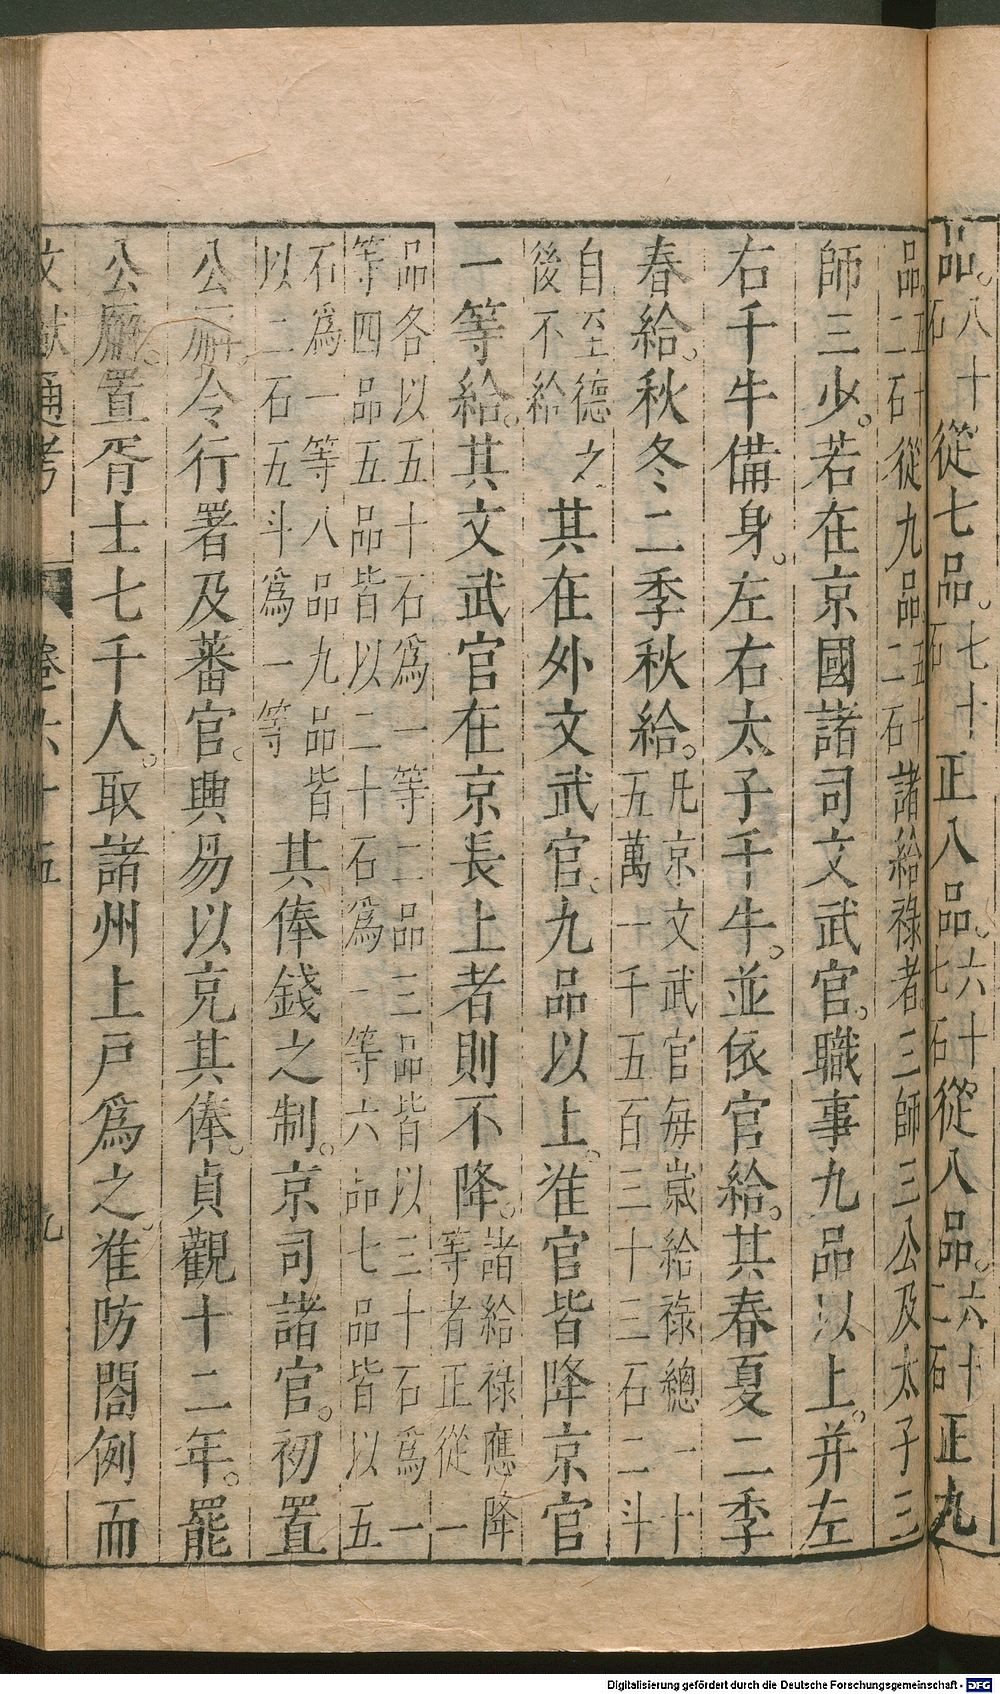 品。八十石從七品。七十石正八品。六十七石從八品。六十二石正九
品。五十二石從九品五十二石諸給祿者三師三公及太子三
師三少。若在京國諸司文武官。職事九品以上。并左
右千牛備身。左右太子千牛。並依官給。其春夏二季
春給。秋冬二季秋給。凡京文武官每歲給祿總一十五萬一千五百三十三石二斗
自至德之後不給其在外文武官。九品以上。准官皆降京官
一等給。其文武官在京長上者則不降。諸給祿應降等者正從一
品各以五十石爲一等二品三品皆以三十石爲一等四品五品皆以二十石爲一等六品七品皆以五
石爲一等八品九品皆以二石五斗爲一等其俸錢之制。京司諸官。初置
公廨令行署及蕃官。興易以充其俸。貞觀十二年。罷
公廨。置胥士七千人。取諸州上戶爲之。准防閤例而
文獻通考 卷六十五 九
Digitalisierung gefördert durch die Deutsche Forschungsgemeinschaft - DFG